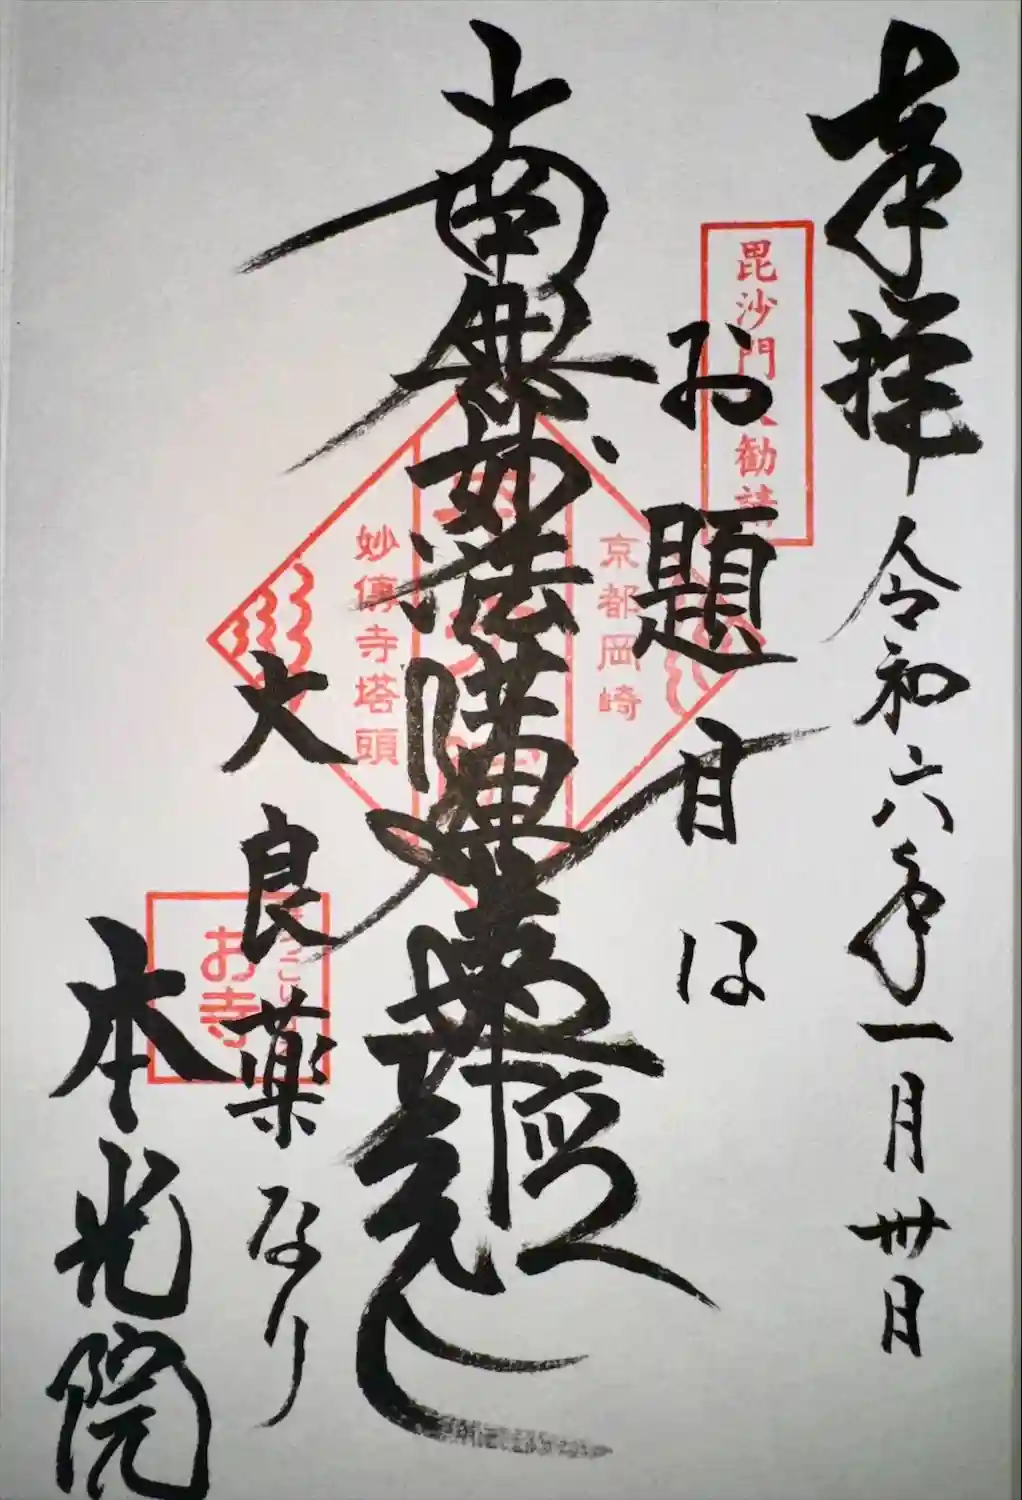 奉拝 令和六年一月卅日
毘沙門
勧請
お題目は
京都岡崎
南無妙法蓮華經
妙傳寺塔頭
大良薬なり
お寺
本光院